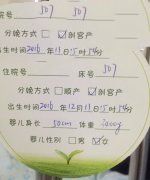 号 507 507
分娩方式 □ ☑剖宫产
出生时间 2016年11月15时54分
住院号 床号 507
分娩方式 □顺产 ☑剖宫产
出生时间 2016年12月11日15时54分
婴儿身长 50cm 体重 3000g
婴儿性别 □男 ☑女